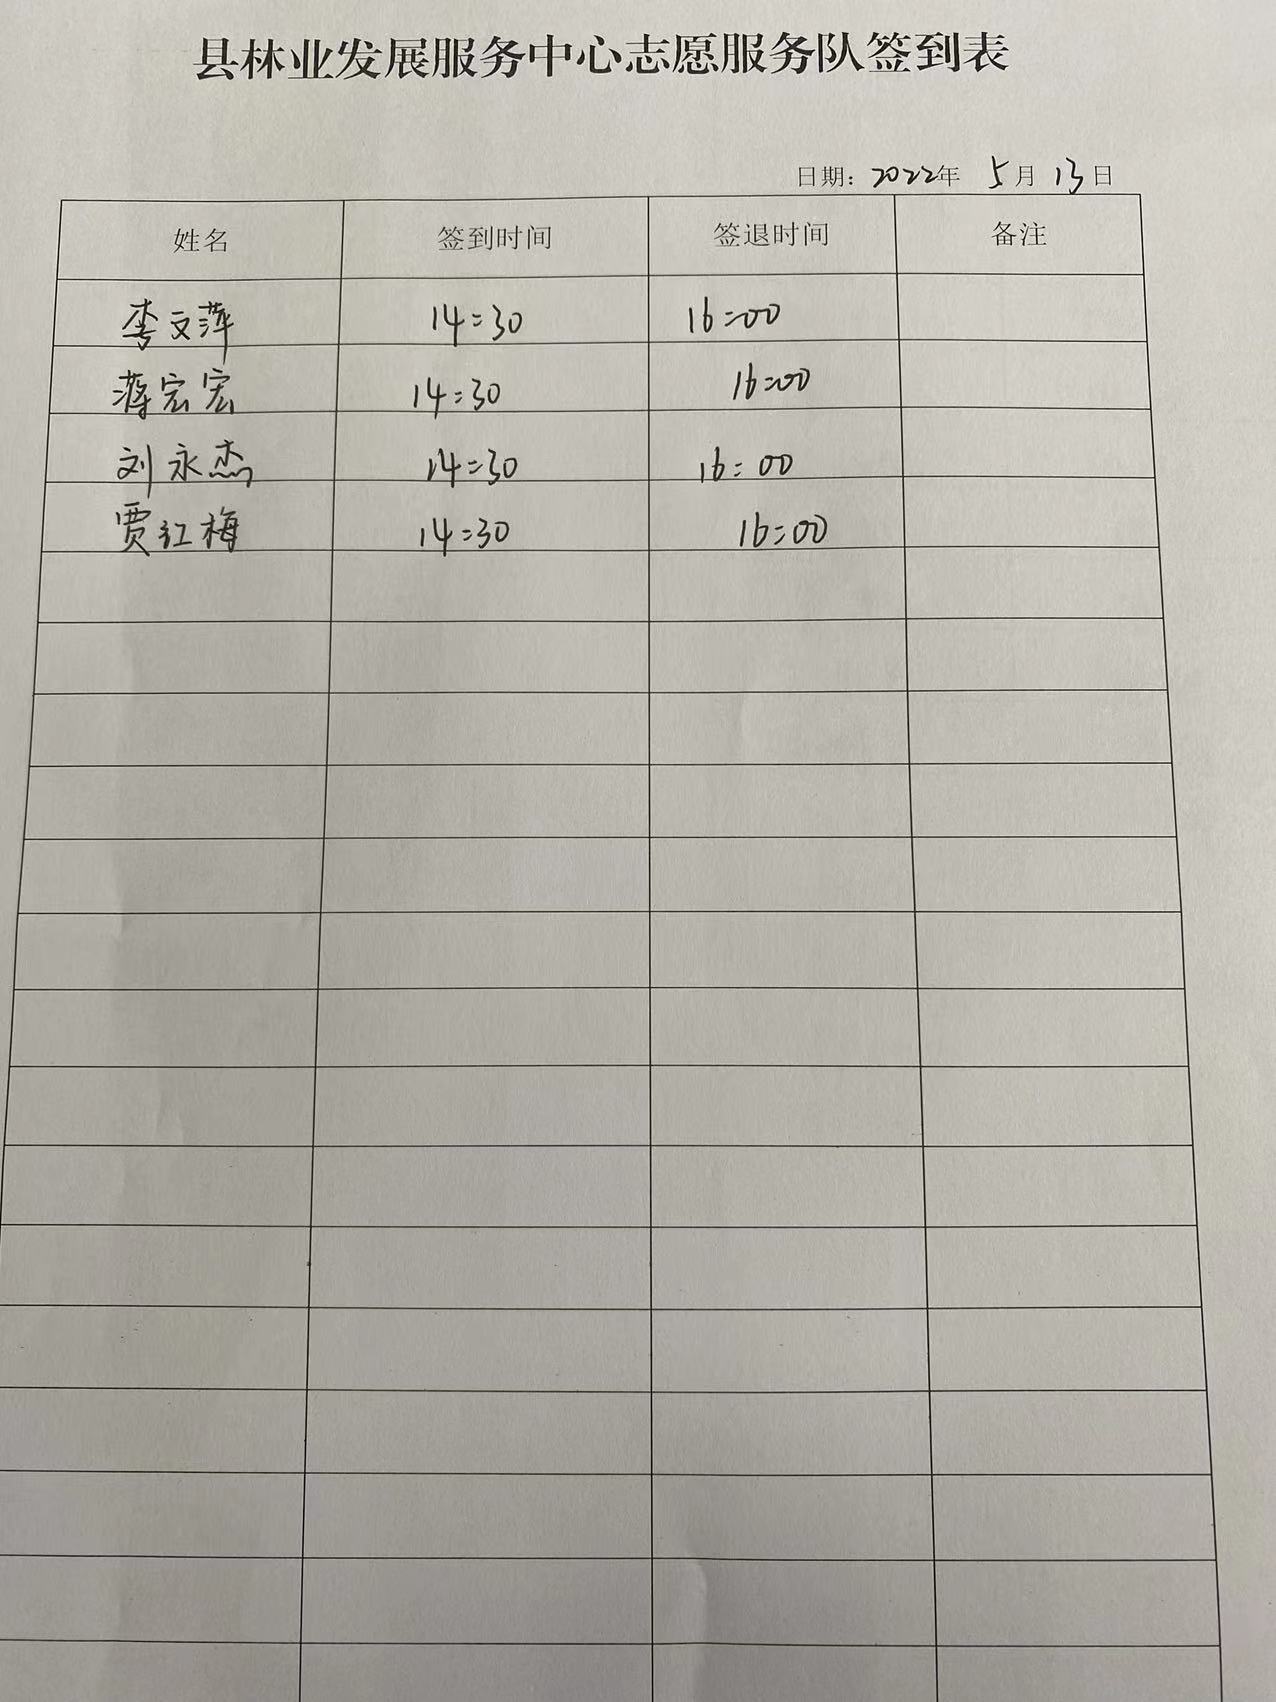 县林业发展服务中心志愿服务队签到表
日期：2022年 5月13日
姓名 签到时间 签退时间 备注
李文萍 14:30 16:00
蒋宏宏 14:30 16:00
刘永杰 14:30 16:00
贾红梅 14:30 16:00